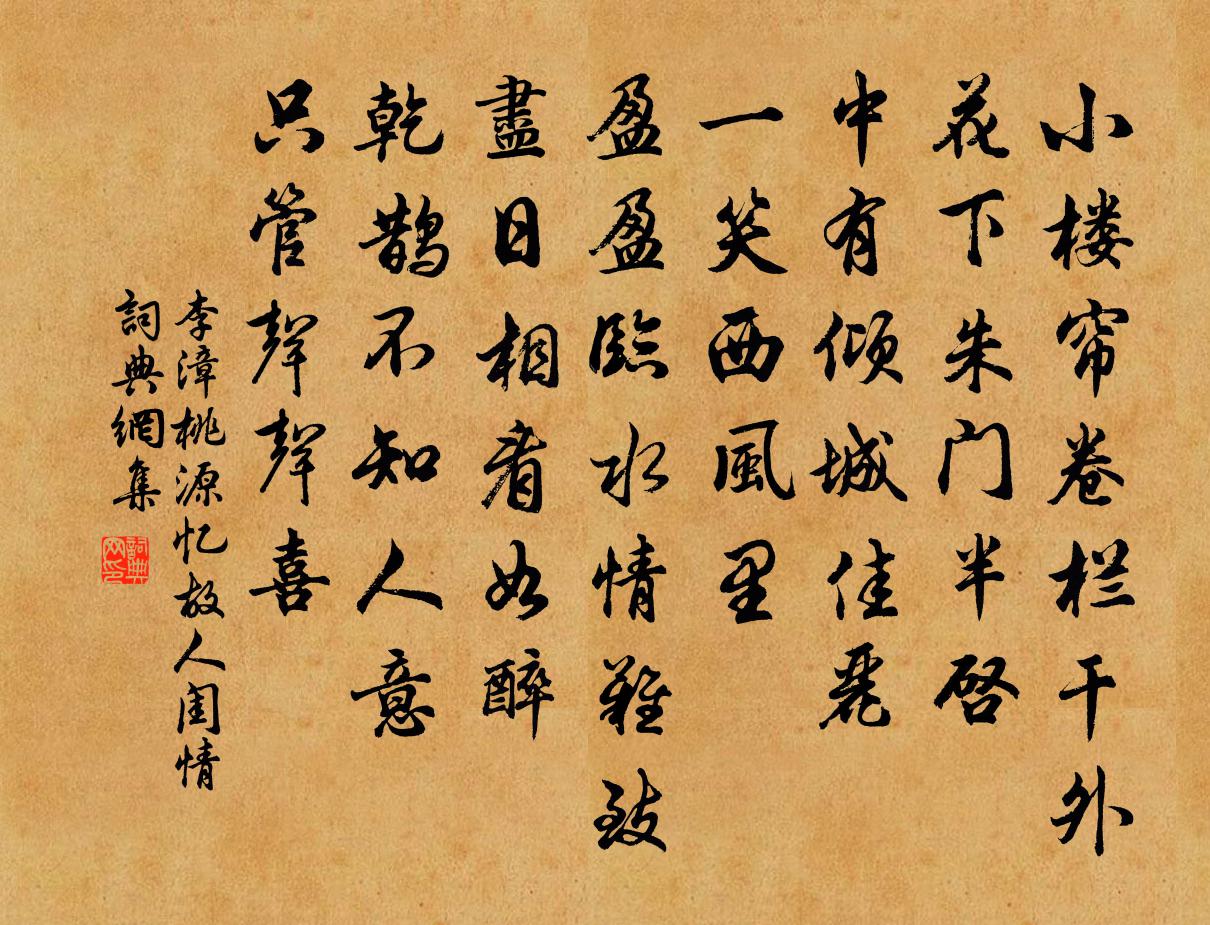 小楼帘卷栏干外
花下朱门半启
中有倾城佳麗
一笑西風里
盈盈臨水情難致
盡日相看如醉
乾鵲不知人意
只管聲聲喜
李漳桃源忆故人闺情
詞典網集
詞典网印